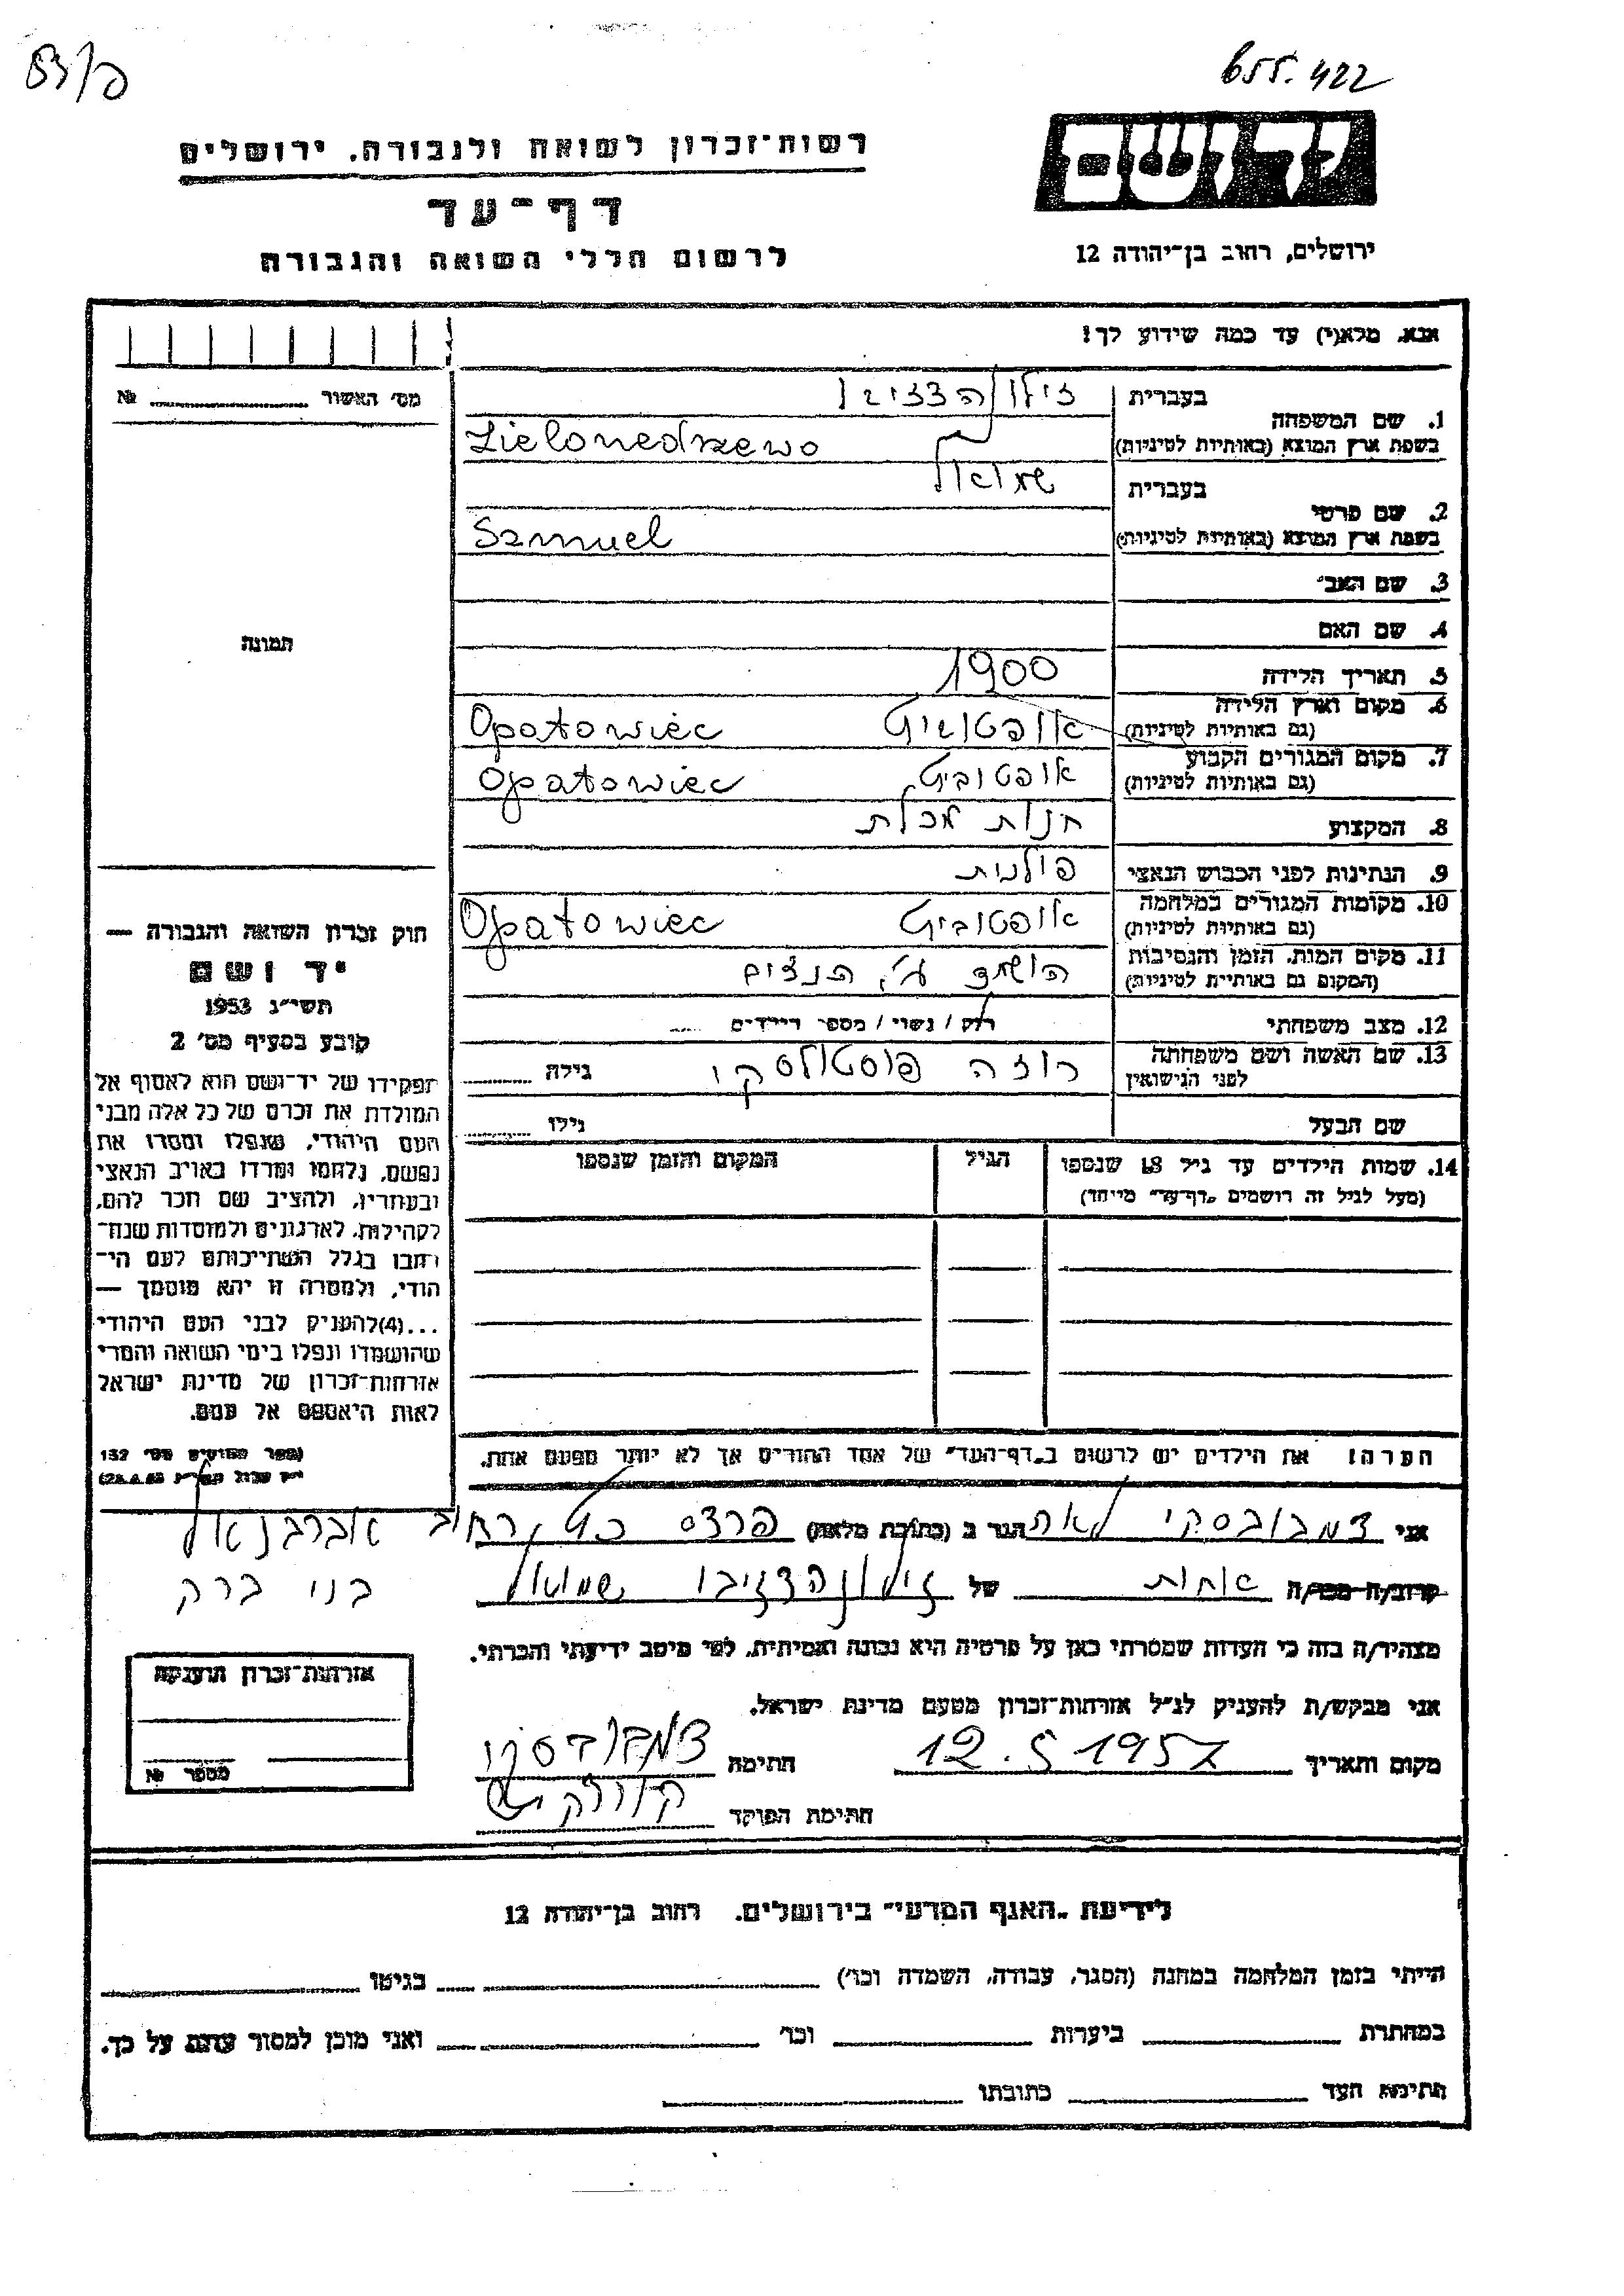 655.422
רשות־זכרון לשואה ולגבורה. ירושלים
דף־עד
לרשום חללי השואה והגבורה
יד ושם
ירושלים, רחוב בן־יהודה 12
אנא. מלא(י) עד כמה שידוע לך!
מס׳ האשור № ........
1. שם המשפחה
בעברית
בשפת ארץ המוצא (באותיות לטיניות) Zielonedrzewo
2. שם פרטי
בעברית שמואל
בשפת ארץ המוצא (באותיות לטיניות) Szmuel
3. שם האב
4. שם האם
5. תאריך הלידה 1900
6. מקום וארץ הלידה
(גם באותיות לטיניות) Opatowiec
7. מקום המגורים הקבוע
(גם באותיות לטיניות) אופטוביץ Opatowiec
8. המקצוע חנות מכלת
9. הנתינות לפני הכבוש הנאצי פולנית
10. מקומות המגורים במלחמה
(גם באותיות לטיניות) אופטוביץ Opatowiec
11. מקום המות. הזמן והנסיבות
(המקום גם באותיות לטיניות) הושמד ע״י הנצים
12. מצב משפחתי רוק / נשוי / מספר הילדים ....
13. שם האשה ושם משפחתה
לפני הנישואין רוזה גילה ........
שם הבעל גילו ........
14. שמות הילדים עד גיל 18 שנספו
(מעל לגיל זה רושמים „דף־עד״ מיוחד)
הגיל
המקום והזמן שנספו
הערה! את הילדים יש לרשום ב„דף־העד״ של אחד ההורים אך לא יותר מפעם אחת.
תמונה
חוק זכרון השואה והגבורה —
יד ושם
תשי״ג 1953
קובע בסעיף מס׳ 2
תפקידו של יד־ושם הוא לאסוף אל
המולדת את זכרם של כל אלה מבני
העם היהודי, שנפלו ומסרו את
נפשם, נלחמו ומרדו באויב הנאצי
ובעוזריו, ולהציב שם וזכר להם,
לקהילות, לארגונים ולמוסדות שנח־
רבו בגלל השתייכותם לעם הי־
הודי, ולמטרה זו יהא מוסמך —
...(4)להעניק לבני העם היהודי
שהושמדו ונפלו בימי השואה והמרי
אזרחות־זכרון של מדינת ישראל
לאות היאספם אל עמם.
(ספר החוקים מס׳ 132
אני דמבובסקי לאה הגר ב (כתובת מלאה) פרדס כץ, רחוב אברבנאל
בני ברק
קרוב/ה מכר/ה אחות של שמואל
מצהיר/ה בזה כי העדות שמסרתי כאן על פרטיה היא נכונה ואמיתית, לפי מיטב ידיעתי והכרתי.
אני מבקש/ת להעניק לנ״ל אזרחות־זכרון מטעם מדינת ישראל.
מקום ותאריך 12.5 1957 חתימה
חתימת הפוקד
אזרחות־זכרון הוענקה
מספר №
לידיעת „האגף המדעי״ בירושלים. רחוב בן־יהודה 12
הייתי בזמן המלחמה במחנה (הסגר, עבודה, השמדה וכו׳) ........ בגיטו ........
במחתרת ........ ביערות ........ וכו׳ ........ ואני מוכן למסור עדות על כך.
חתימת העד ........ כתובתו ........